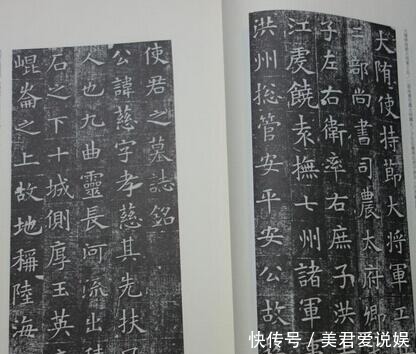 大隋使持節大將軍工
二部尚書司農太府卿
子左右衛率右庶子洪
江虔饒袁撫七州諸軍
洪州総管安平安公故
使君之墓誌銘
公諱慈字孝慈其先扶
人也九曲靈長河流出積
石之下十城側厚玉英
崐崙之上故地稱陸海
快传号 / 美君爱说娱